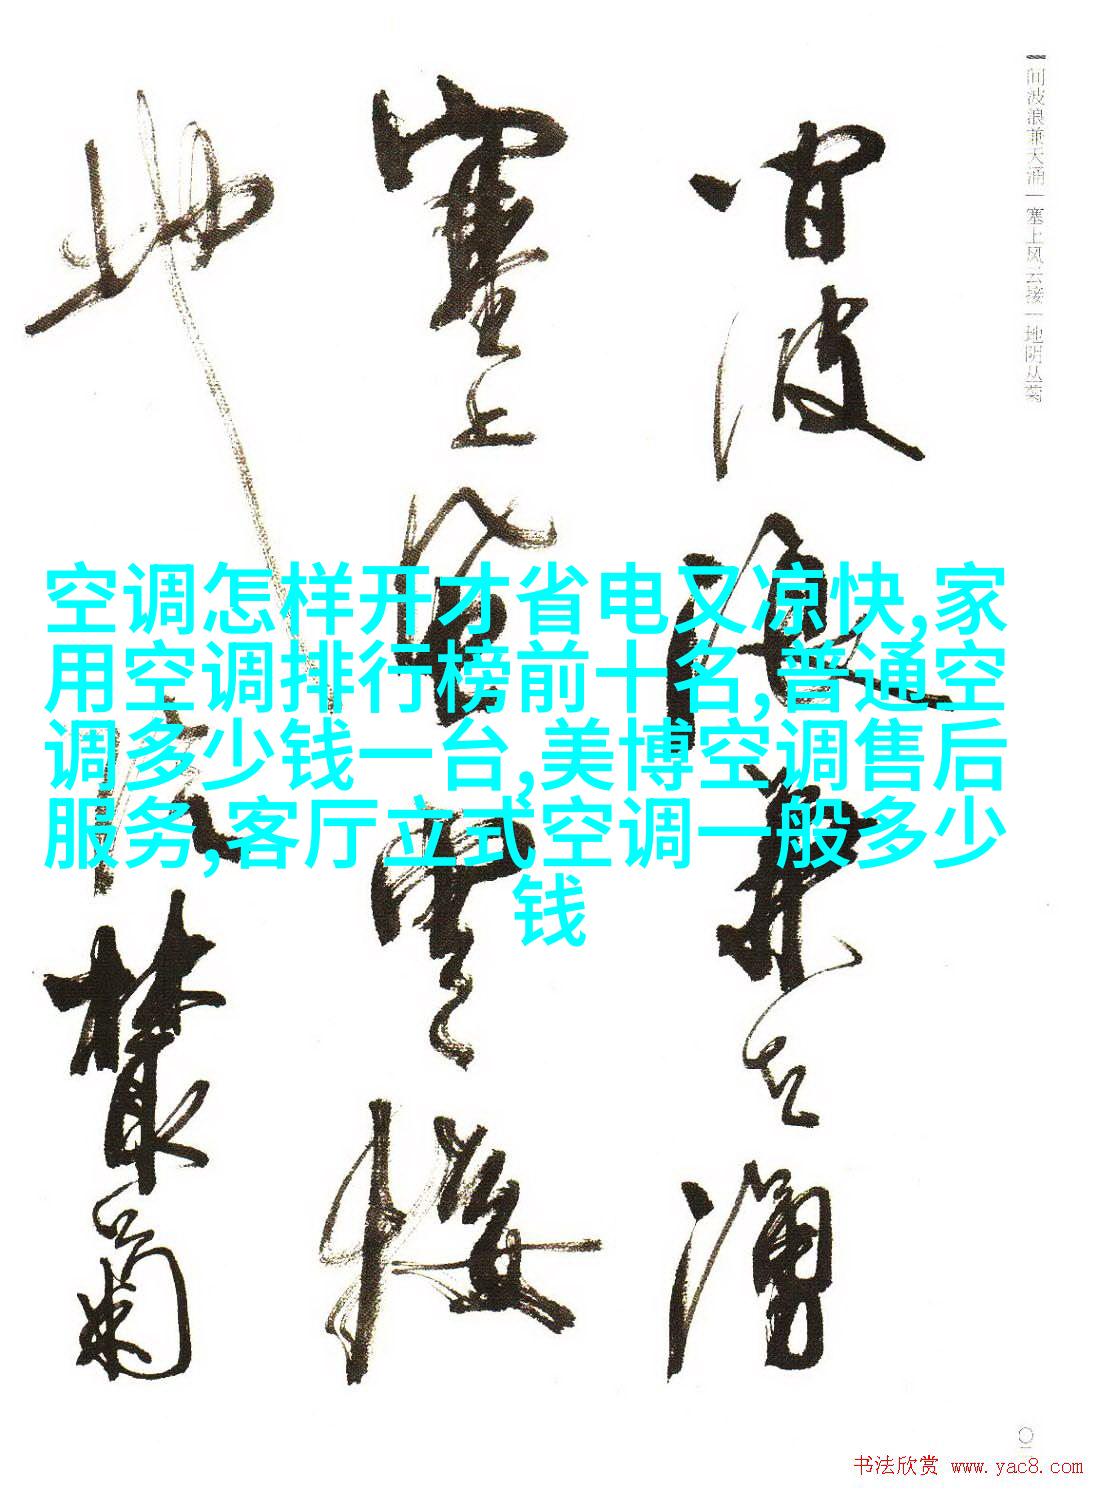 间波浪兼天涌｜塞上风云接｜地阴丛菊
间波浪兼天涌
塞上风云接
地阴丛菊
空调怎样开才省电又凉快,家
用空调排行榜前十名,普通空
调多少钱一台,美博空调售后
服务,客厅立式空调一般多少
钱
书法欣赏 www.yac8.com